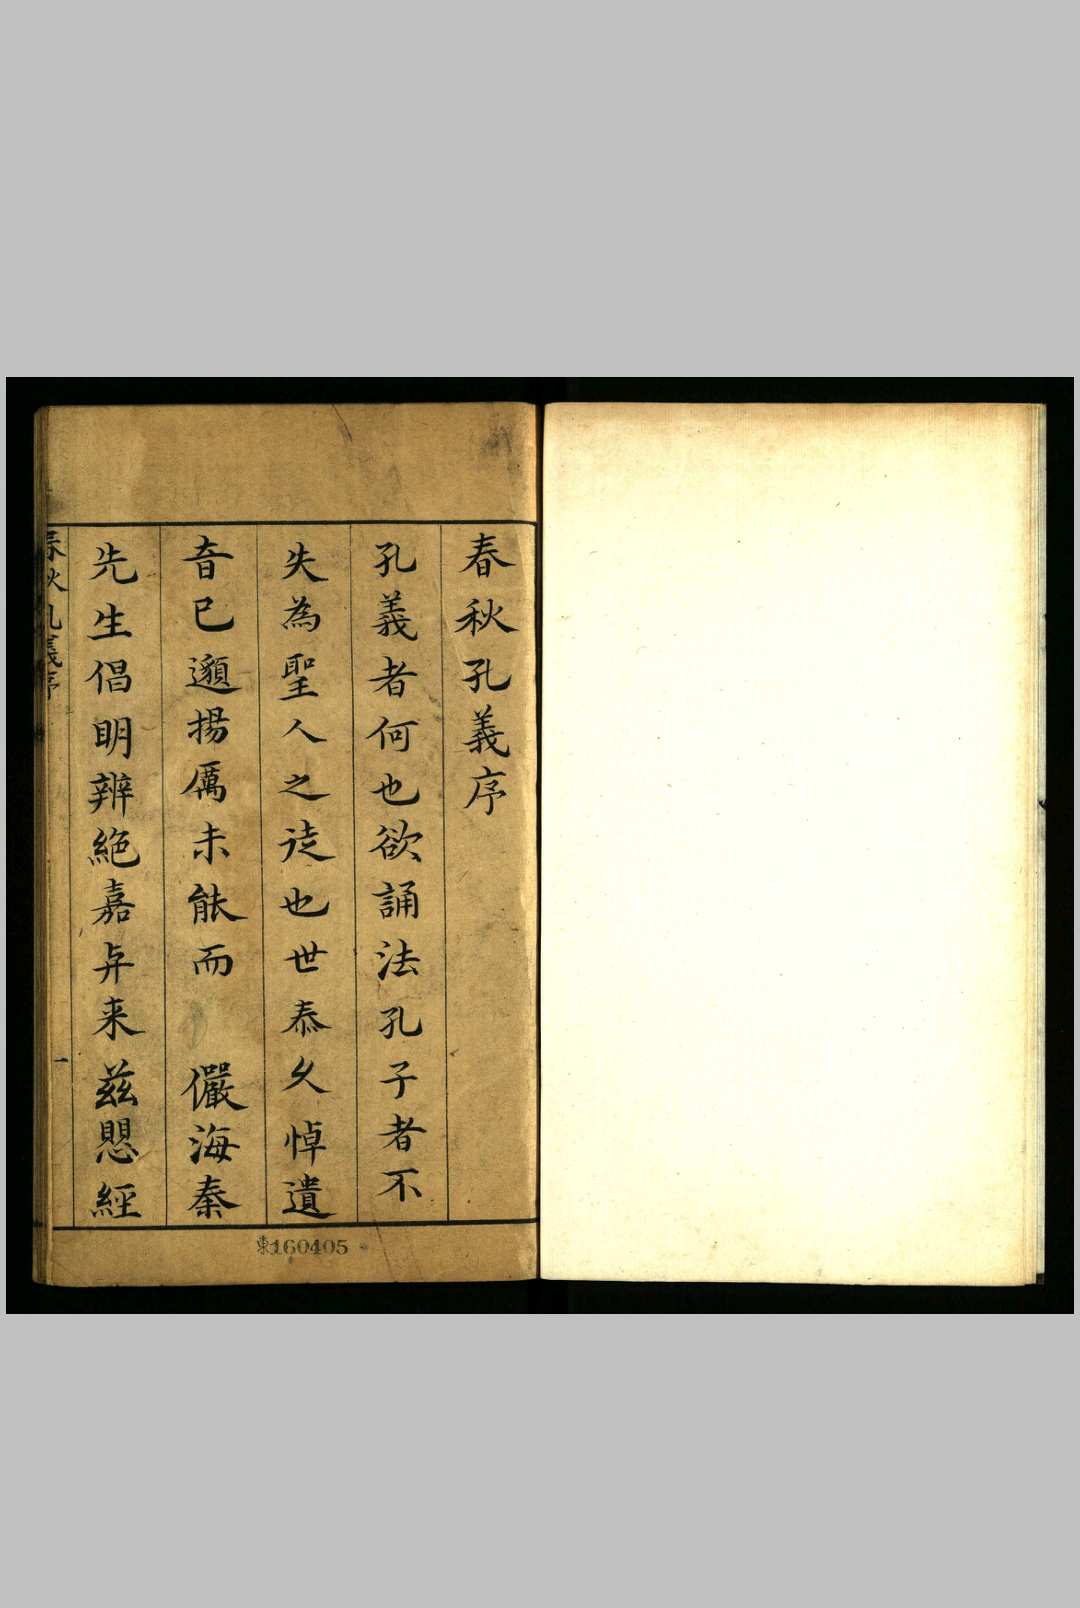 春秋孔義序
孔義者何也欲誦法孔子者不
失為聖人之徒也世泰久悼遺
音已邈揚厲未能而　儼海秦
先生倡明辨絕嘉弁来兹愳經
春秋孔義序
一
東160405